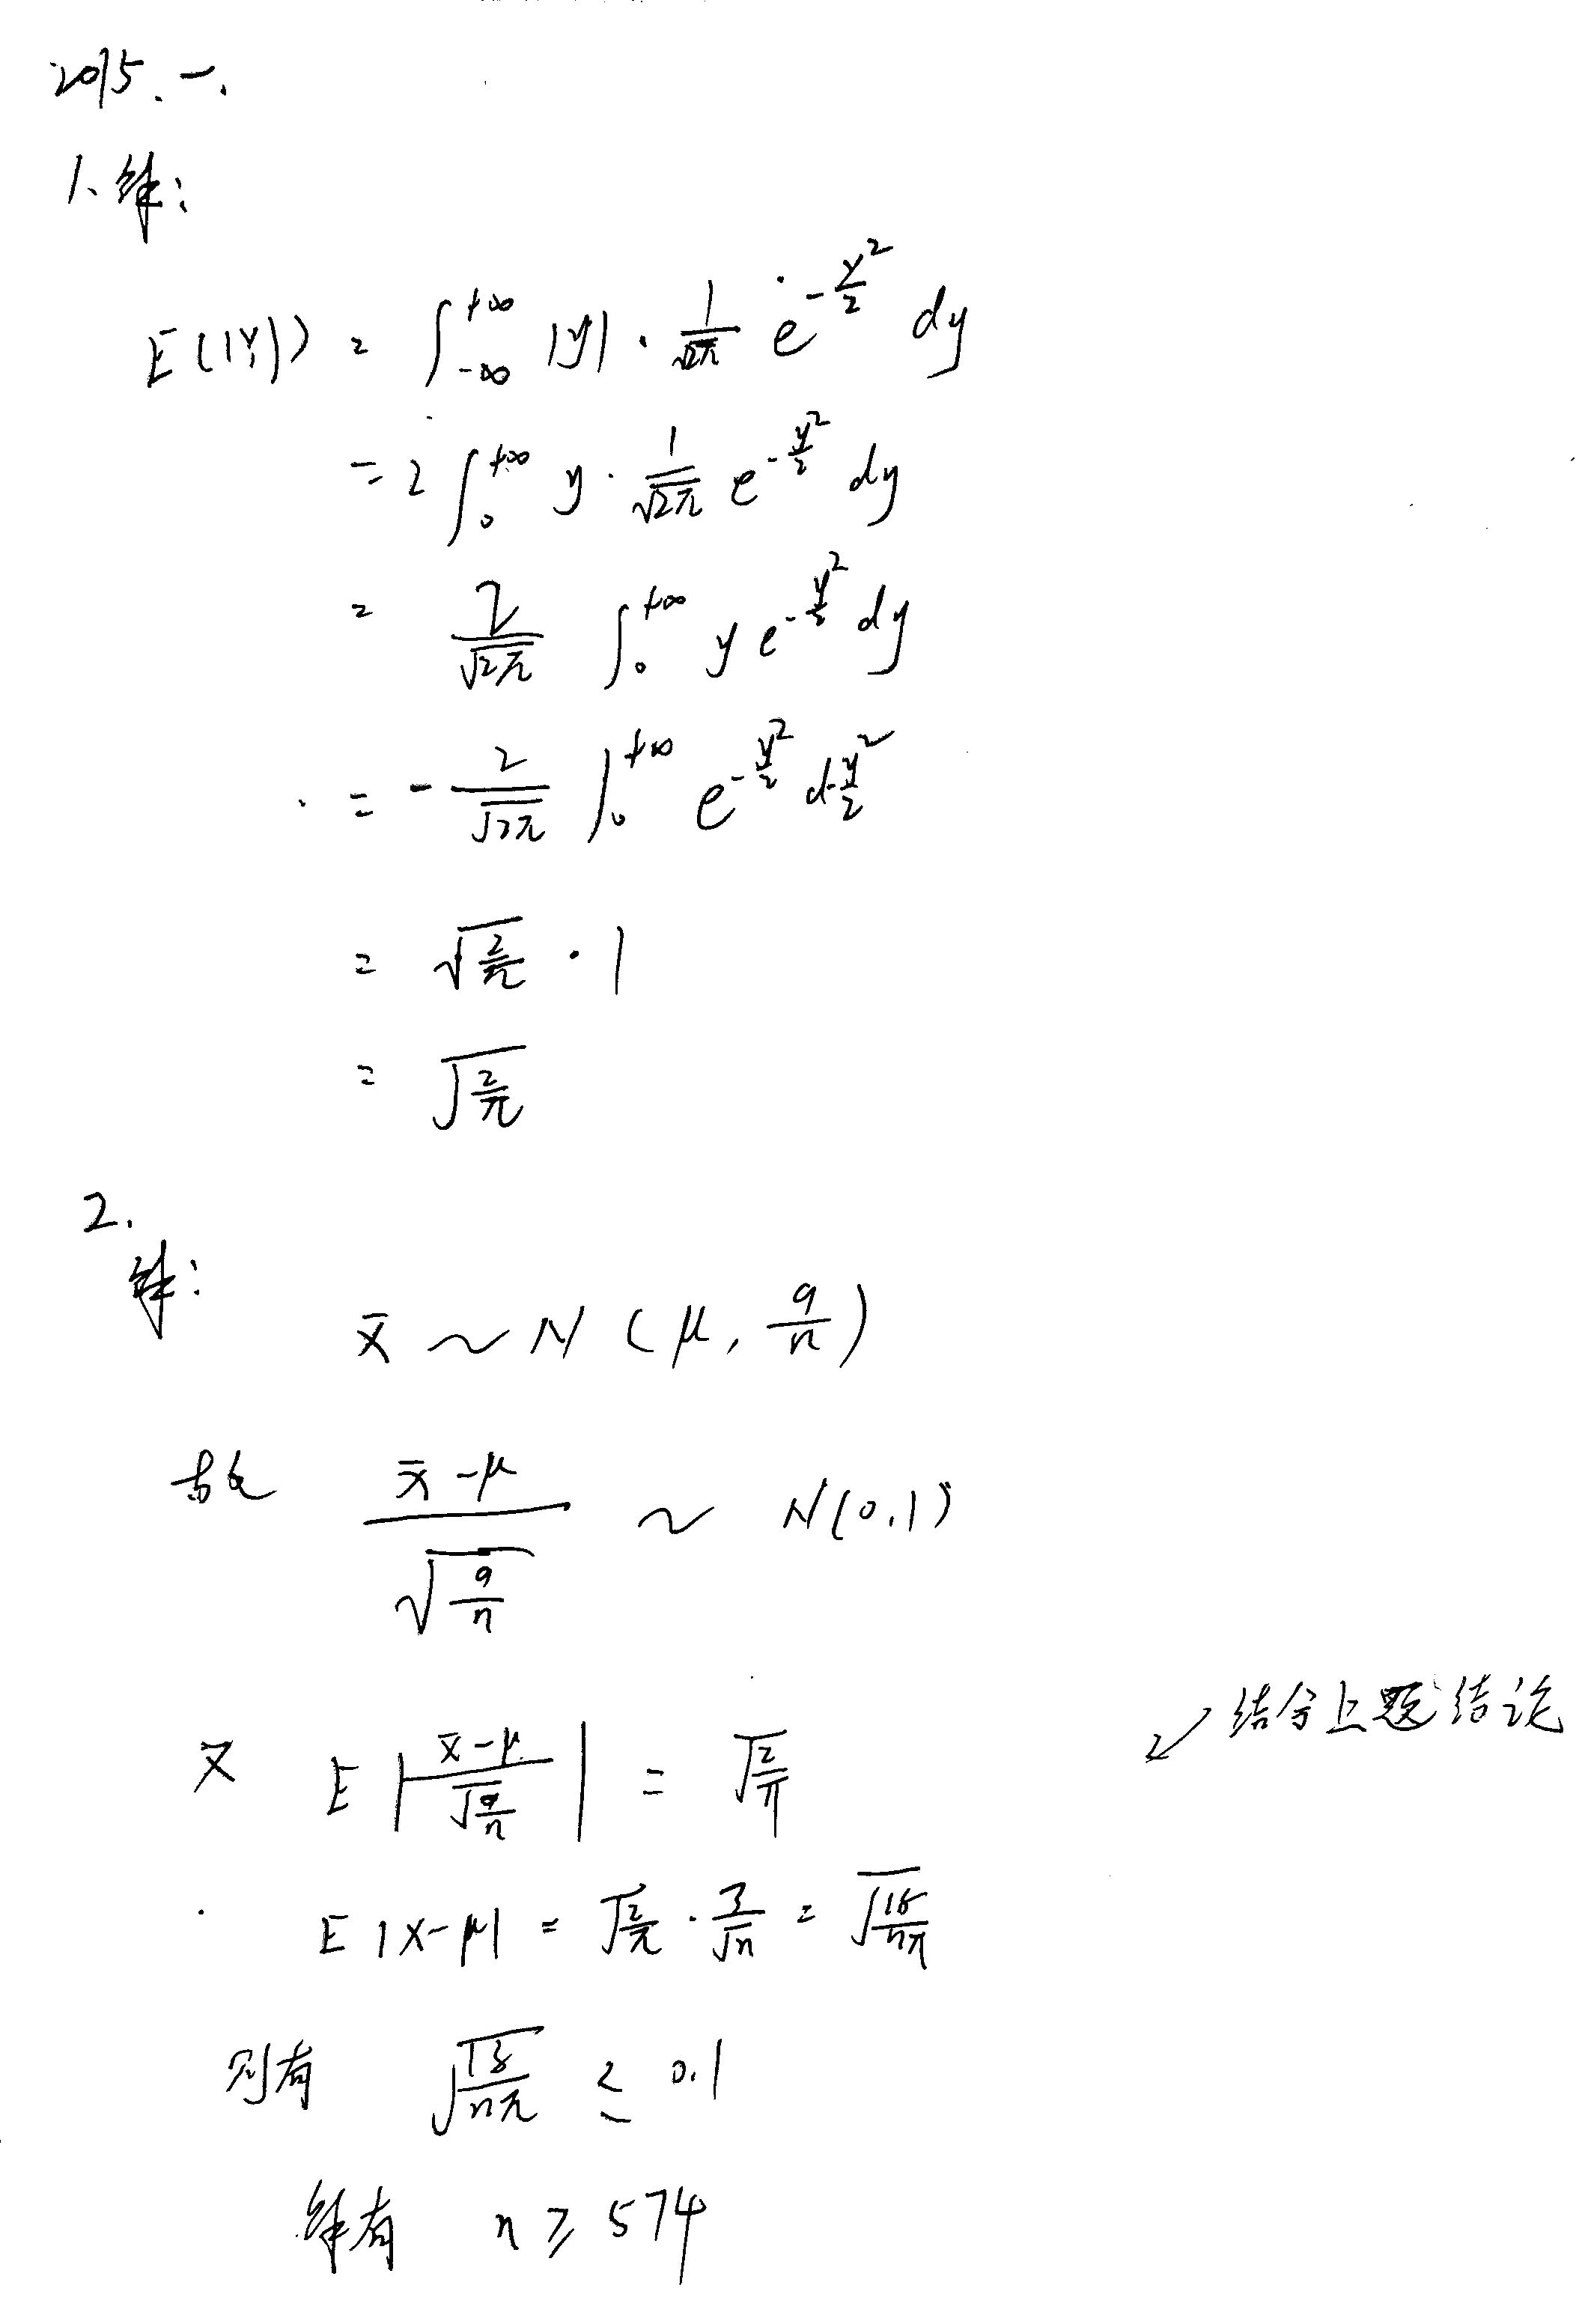 2015.一.
1、解:
E(|Y|) = ∫_{-∞}^{+∞} |y| · \frac{1}{\sqrt{2π}} e^{-\frac{y^2}{2}} dy
= 2 ∫_0^{+∞} y · \frac{1}{\sqrt{2π}} e^{-\frac{y^2}{2}} dy
= \frac{2}{\sqrt{2π}} ∫_0^{+∞} y e^{-\frac{y^2}{2}} dy
= -\frac{2}{\sqrt{2π}} ∫_0^{+∞} e^{-\frac{y^2}{2}} d-\frac{y^2}{2}
= \sqrt{\frac{2}{π}} · 1
= \sqrt{\frac{2}{π}}
2.
解:
x̄ ~ N(μ, \frac{9}{n})
故 \frac{x̄-μ}{\sqrt{\frac{9}{n}}} ~ N(0,1)
又 E|\frac{x̄-μ}{\sqrt{\frac{9}{n}}}| = \sqrt{\frac{2}{π}} ↙结合上题结论
E|x-μ| = \sqrt{\frac{2}{π}} · \frac{3}{\sqrt{n}} = \sqrt{\frac{18}{nπ}}
则有 \sqrt{\frac{18}{nπ}} ≤ 0.1
解有 n ≥ 574